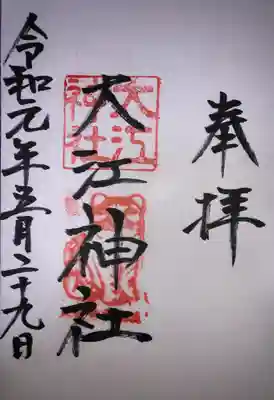 奉拝
大江神社
大江神社
令和元年五月二十九日